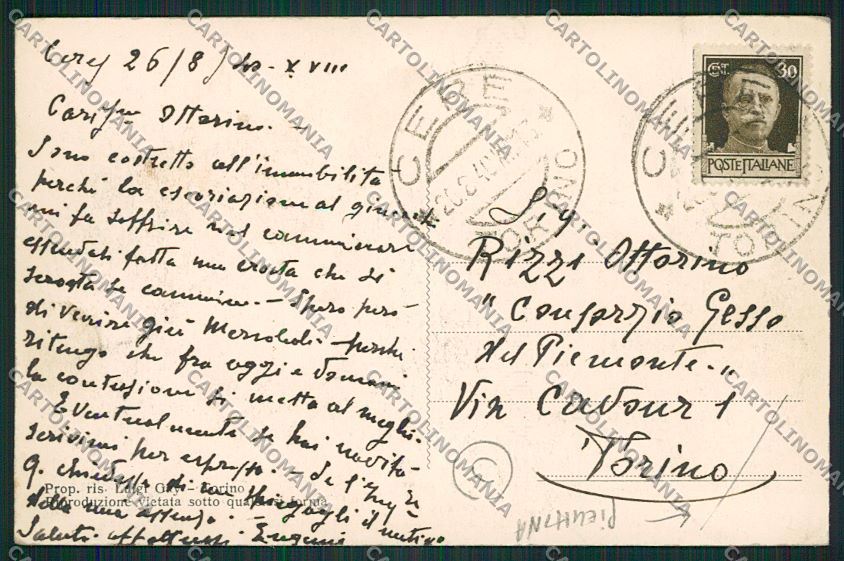 Ceres 26/8/40 - XVIII
Cariss. Ottorino. -
Sono costretto all'immobilità
perchè la escoriazione al ginocchio
mi fa soffrire nel camminare
essendosi fatta una crosta che si
screpola se cammino. - Spero però
di venire giù Mercoledì - perchè
ritengo che fra oggi e domani
la contusione si metta al meglio.
Eventualmente se hai novità
scrivimi per espresso. - Se l'Ing.
G. chiedesse di me spiegagli il motivo
della mia assenza.
Saluti affettuosi Eugenio
Prop. ris. Luigi Gay - Torino
Riproduzione vietata sotto qualsiasi forma
CERES
TORINO
CT 30
POSTE ITALIANE
CERES
TORINO
Sig.
Rizzi Ottorino
"Consorzio Gesso
del Piemonte"
Via Cavour 1
Torino
CARTOLINOMANIA